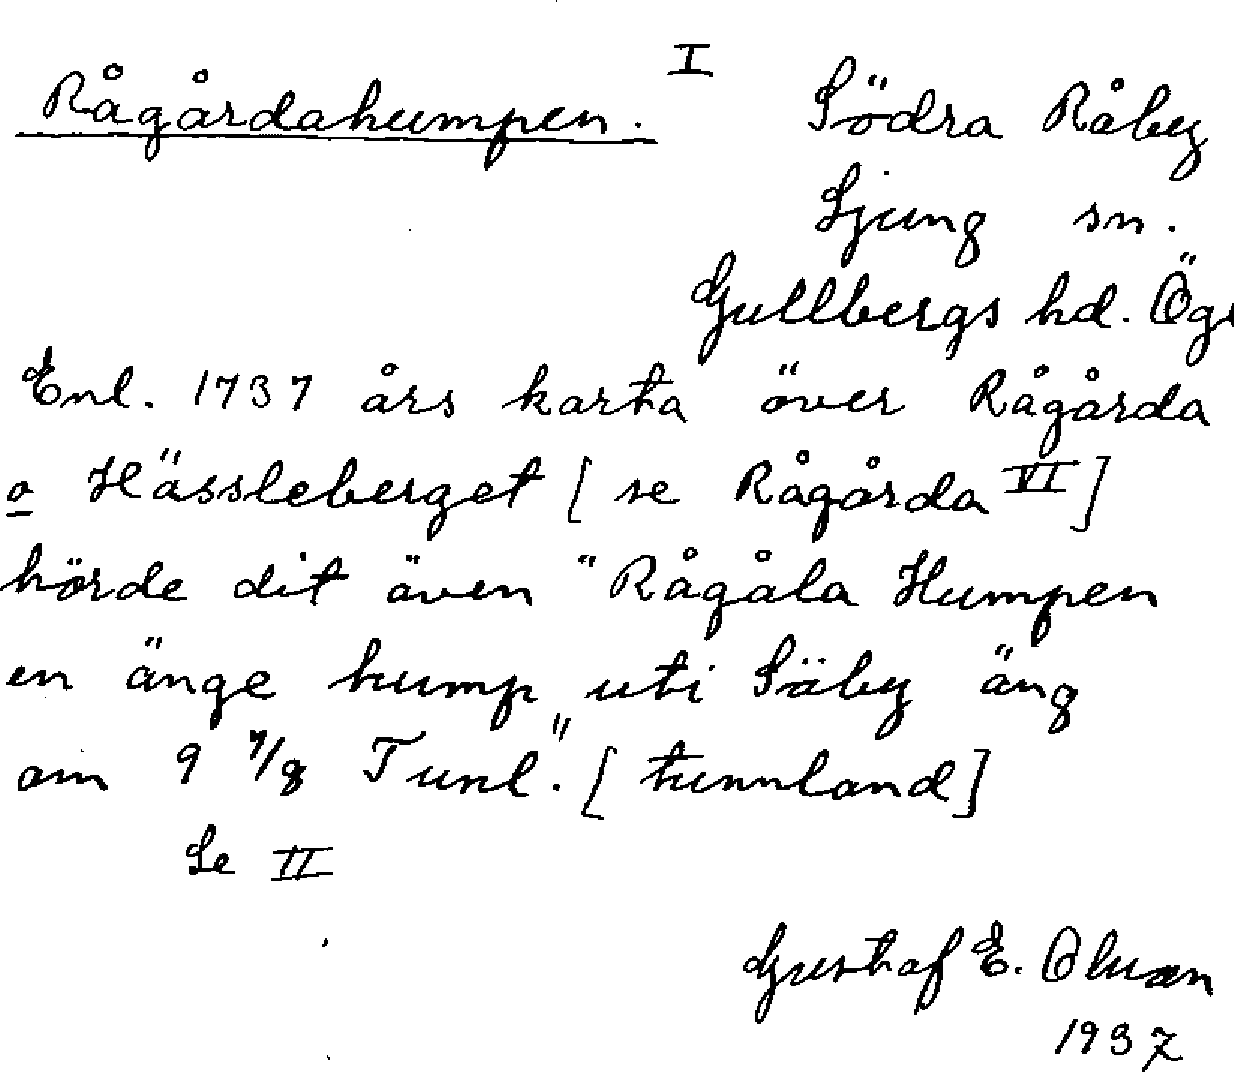 Rågårdahumpen. I Södra Råby
Ljung sn.
Gullbergs hd. Ög
Enl. 1737 års karta över Rågårda
o Hässleberget [se Rågårda VI]
hörde dit även "Rågåla Humpen
en änge hump uti Säby äng
om 9 7/8 Tunl." [tunnland]
Se II
Gustaf E. Olsson
1937